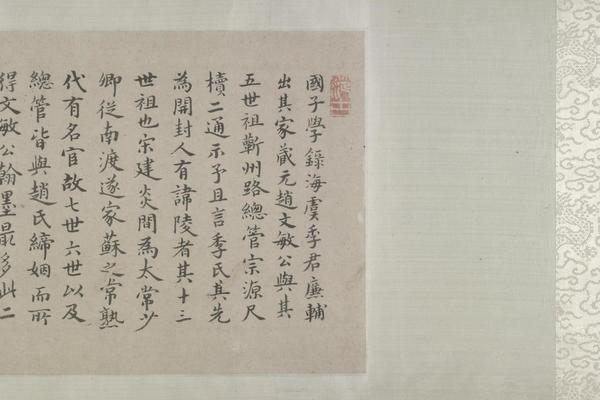 國子學錄海虞季君廉輔
出其家藏元趙文敏公與其
五世祖蘄州路總管宗源尺
牘二通示予且言季氏其先
為開封人有諱陵者其十三
世祖也宋建炎間為太常少
卿從南渡遂家蘇之常熟
代有名官故七世六世以及
總管皆與趙氏締姻而所
得文敏公翰墨最多此二